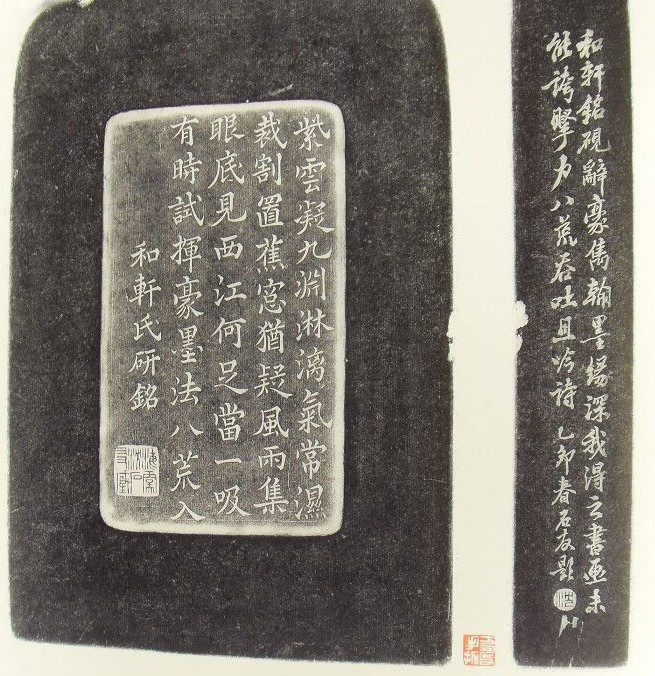 和軒銘硯辭豪雋翰墨緣深我得之書画未
能誇力八荒吞吐且吟诗 乙卯春石友題
沈
紫雲凝九淵淋漓氣常濕
裁割置蕉窓猶疑風雨集
眼底見西江何足當一吸
有時試揮豪墨法八荒入
和軒氏研銘